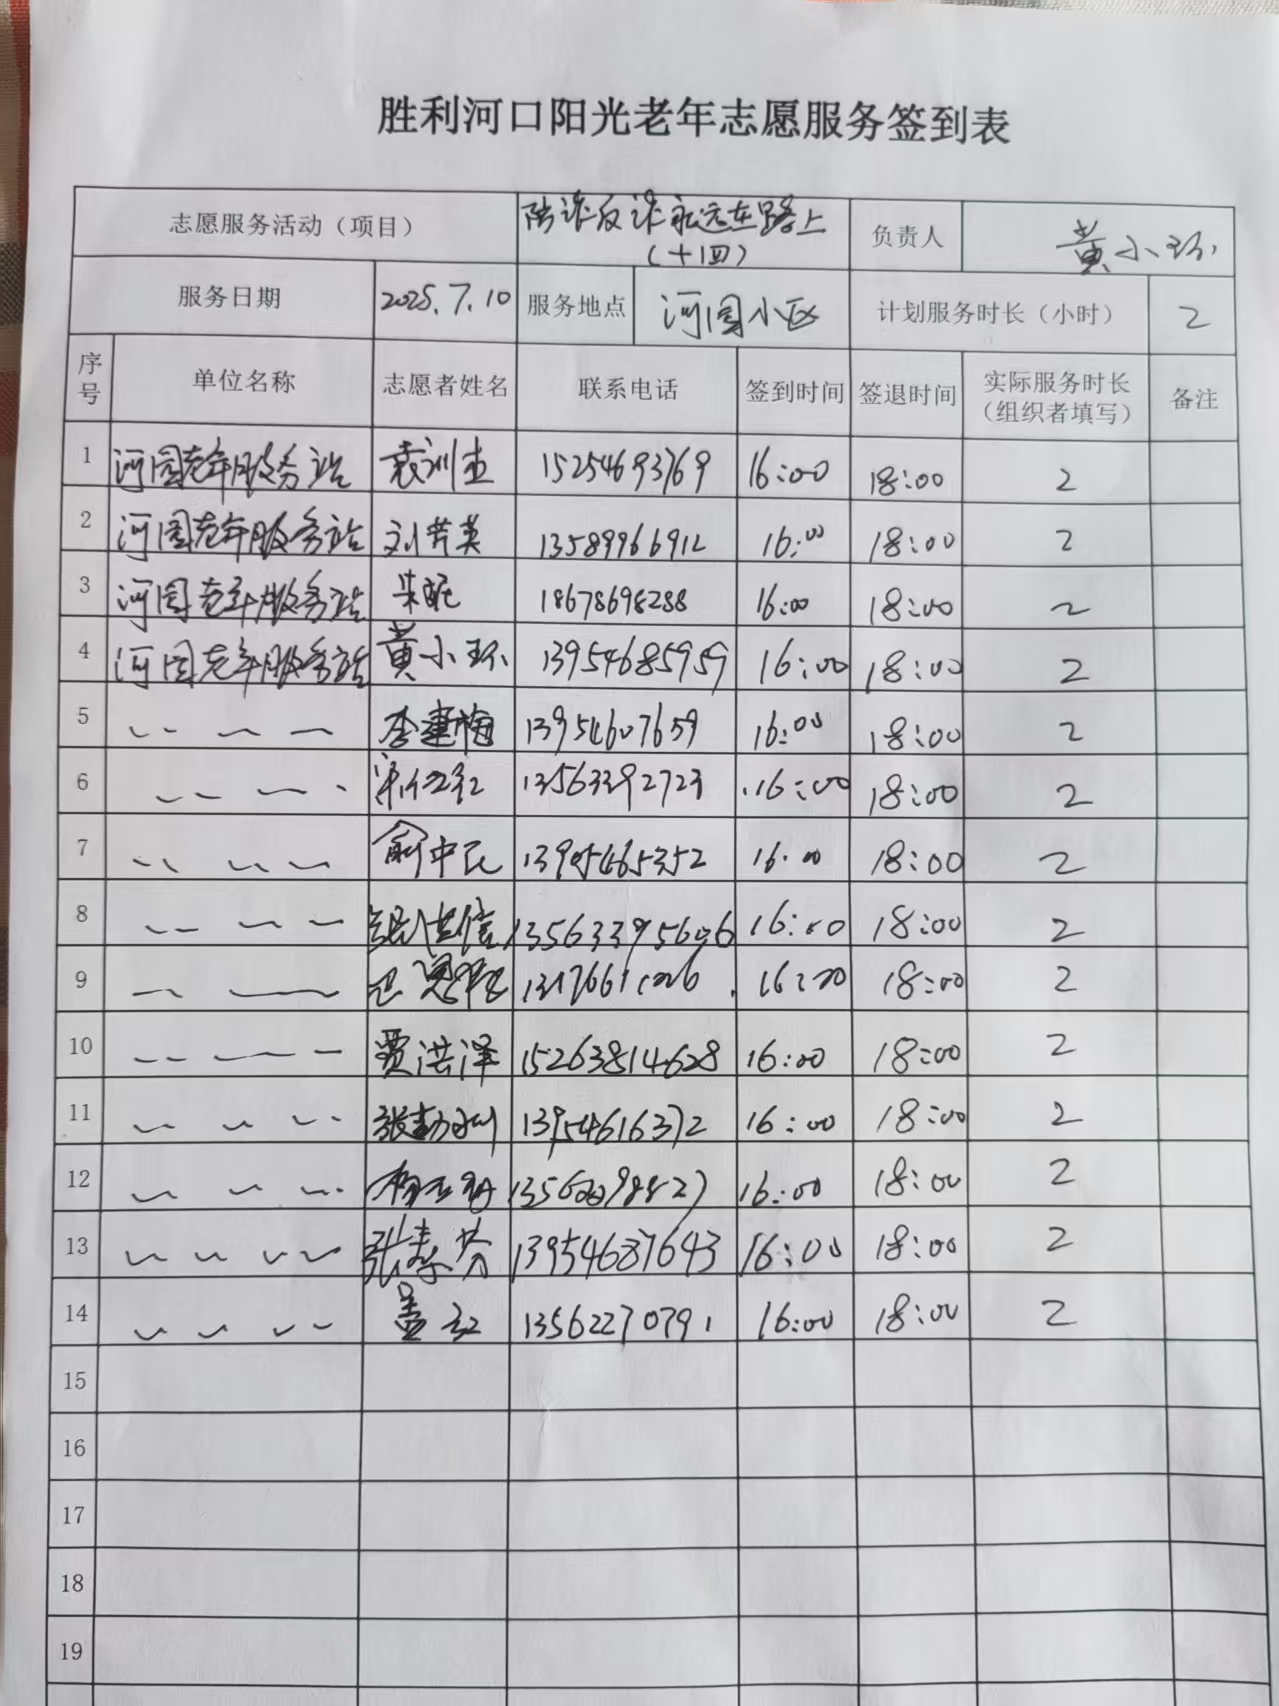 胜利河口阳光老年志愿服务签到表
志愿服务活动（项目） 防诈反诈永远在路上（十四） 负责人 黄小环
服务日期 2025.7.10 服务地点 河园小区 计划服务时长（小时） 2
序号 单位名称 志愿者姓名 联系电话 签到时间 签退时间 实际服务时长（组织者填写） 备注
1 河园老年服务站 袁训生 15254693769 16:00 18:00 2
2 河园老年服务站 刘芳英 13589966912 16:00 18:00 2
3 河园老年服务站 朱 18678698288 16:00 18:00 2
4 河园老年服务站 黄小环 13954685959 16:00 18:00 2
5 李建梅 13954607659 16:00 18:00 2
6 13563392723 16:00 18:00 2
7 俞中民 16:00 18:00 2
8 13563395606 16:00 18:00 2
9 16:00 18:00 2
10 贾洪泽 15263814628 16:00 18:00 2
11 张 13954616372 16:00 18:00 2
12 16:00 18:00 2
13 张春芬 13954637643 16:00 18:00 2
14 盖红 13562270791 16:00 18:00 2
15
16
17
18
19